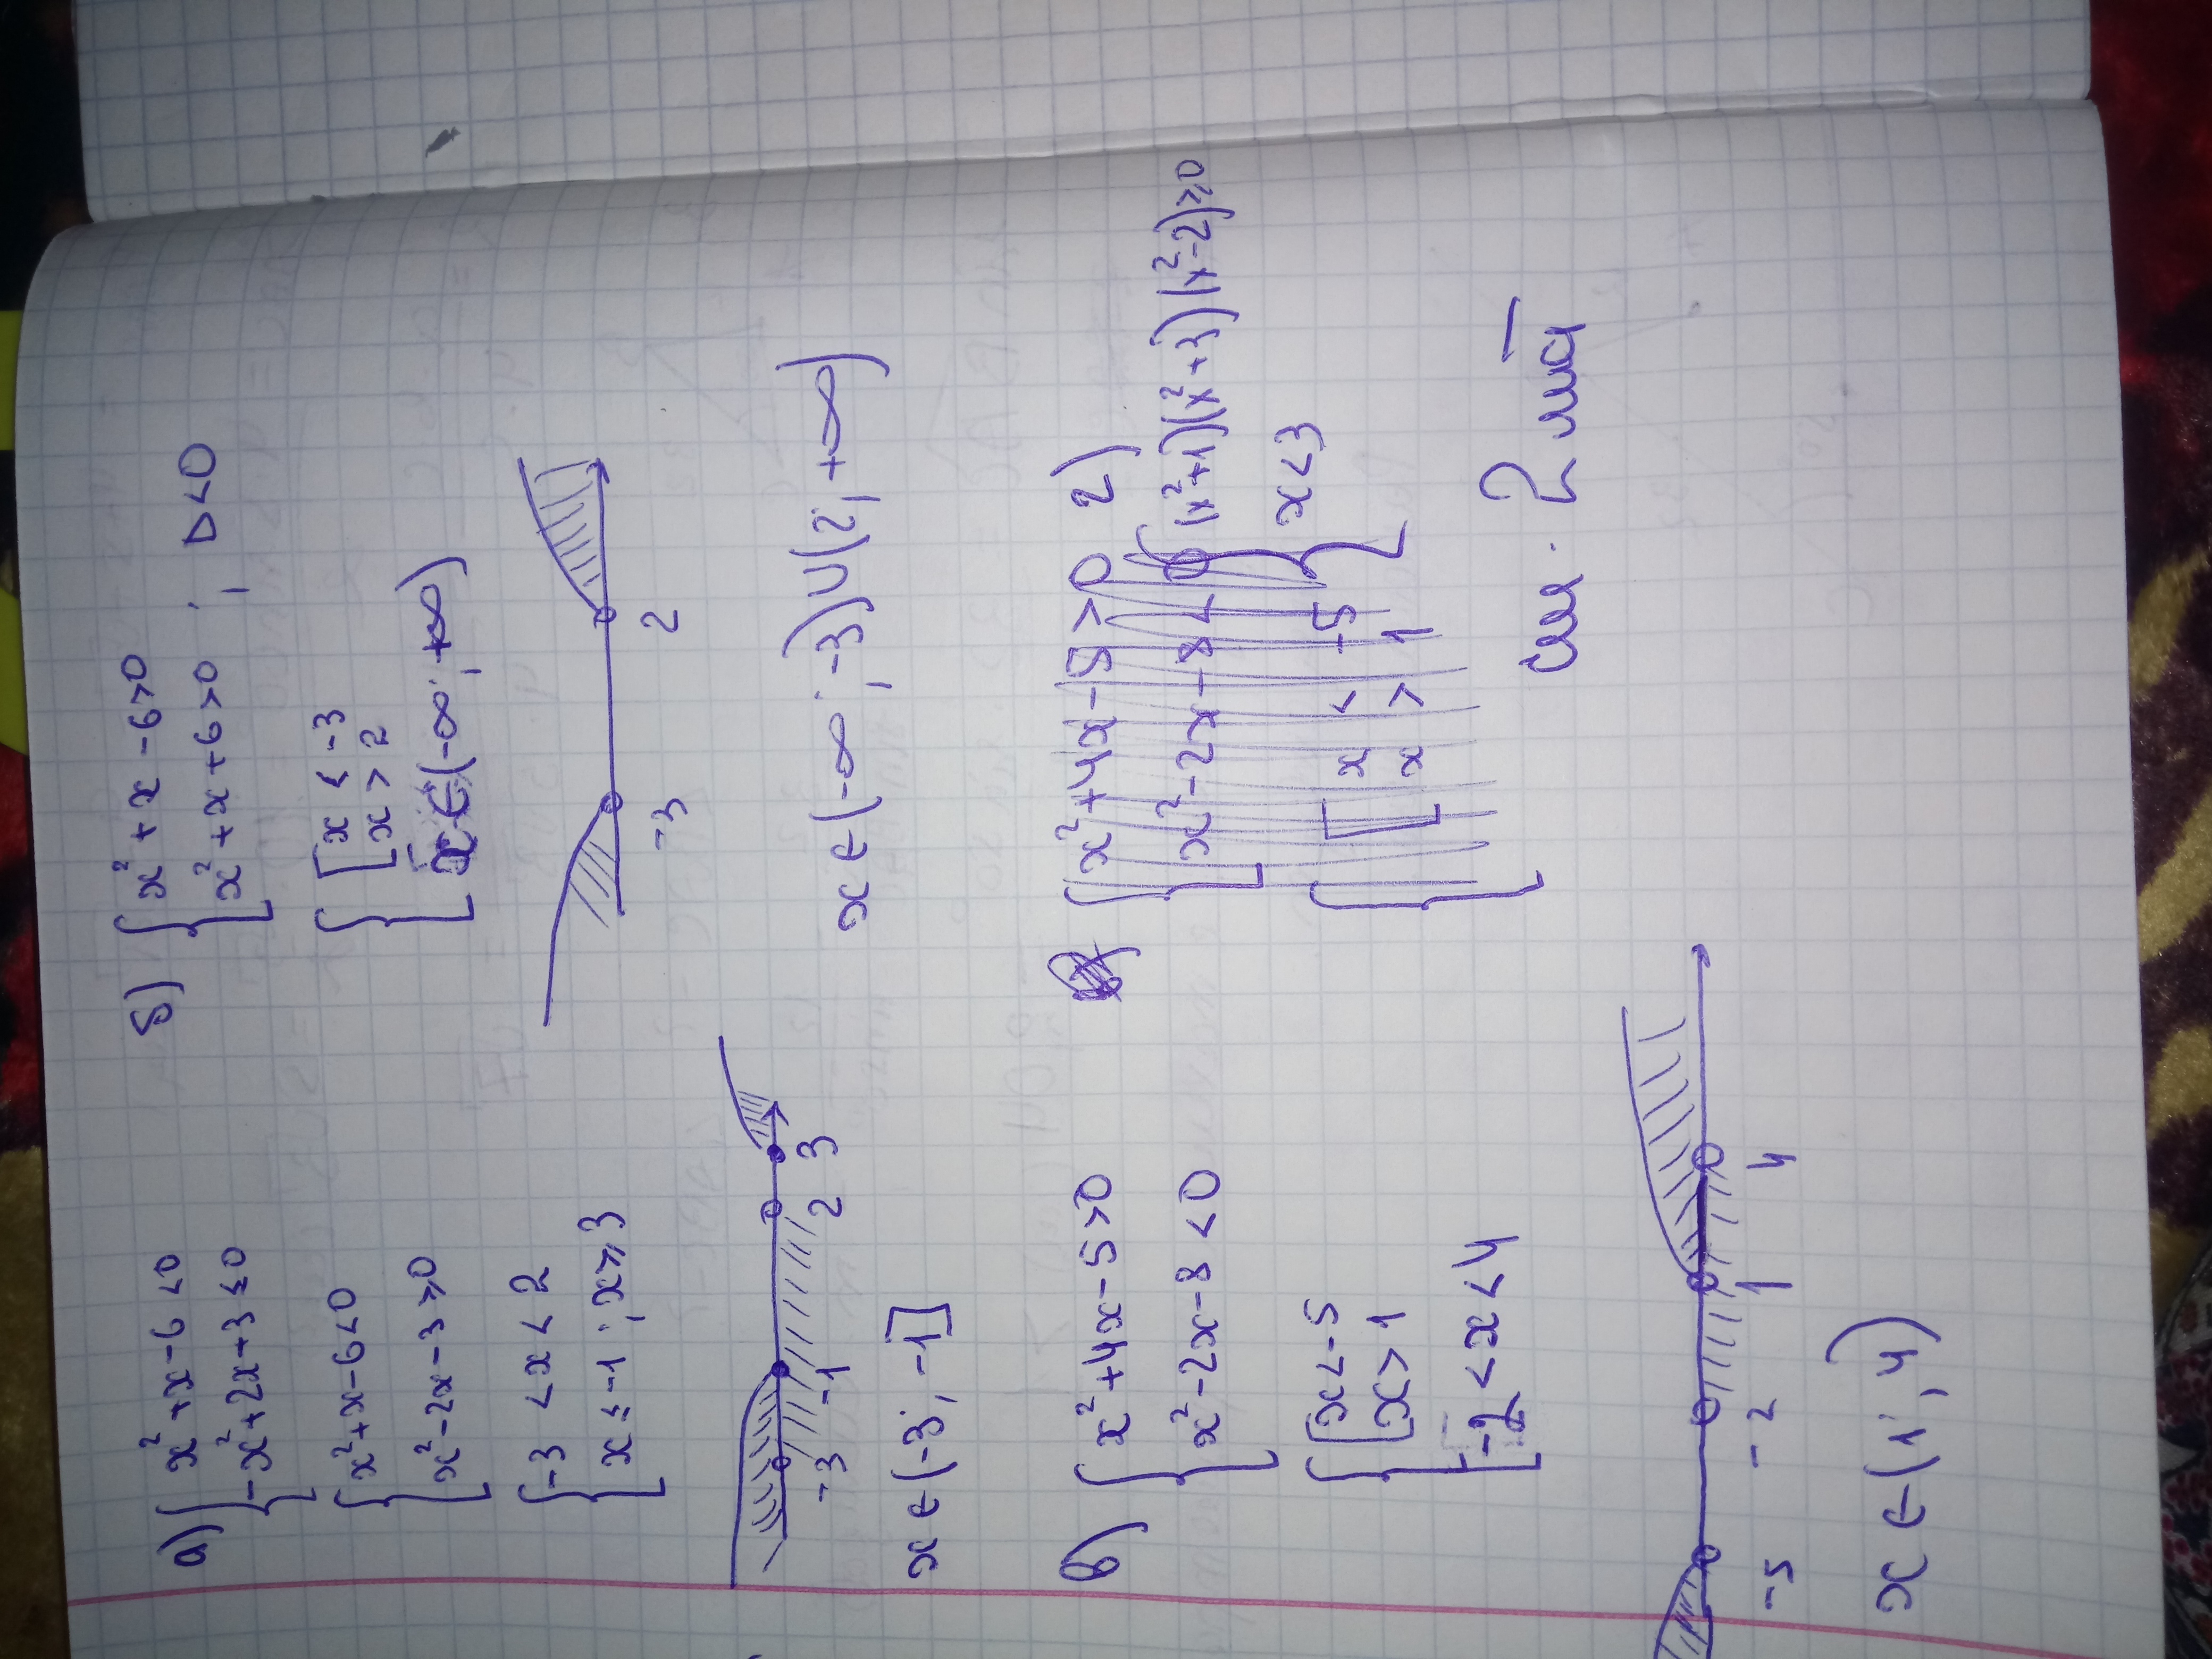 а) { x² + x - 6 < 0
-x² + 2x + 3 ≤ 0
{ x² + x - 6 < 0
x² - 2x - 3 ≥ 0
{ -3 < x < 2
x ≤ -1 ; x ≥ 3
-3 -1 2 3
x ∈ (-3; -1]
б) { x² + x - 6 > 0
x² + x + 6 > 0 ; D < 0
{ [ x < -3
x > 2
x ∈ (-∞; +∞)
-3 2
x ∈ (-∞; -3) ∪ (2; +∞)
в) { x² + 4x - 5 > 0
x² - 2x - 8 < 0
{ [ x < -5
x > 1
-2 < x < 4
-5 -2 1 4
x ∈ (1; 4)
{ x² + 4x - 5 > 0
x² - 2x + 8 < 0
{ [ x < -5
x > 1
2)
{ (x² + 1)(x² + 3)(x² - 2) ≥ 0
x < 3
см. 2 лист